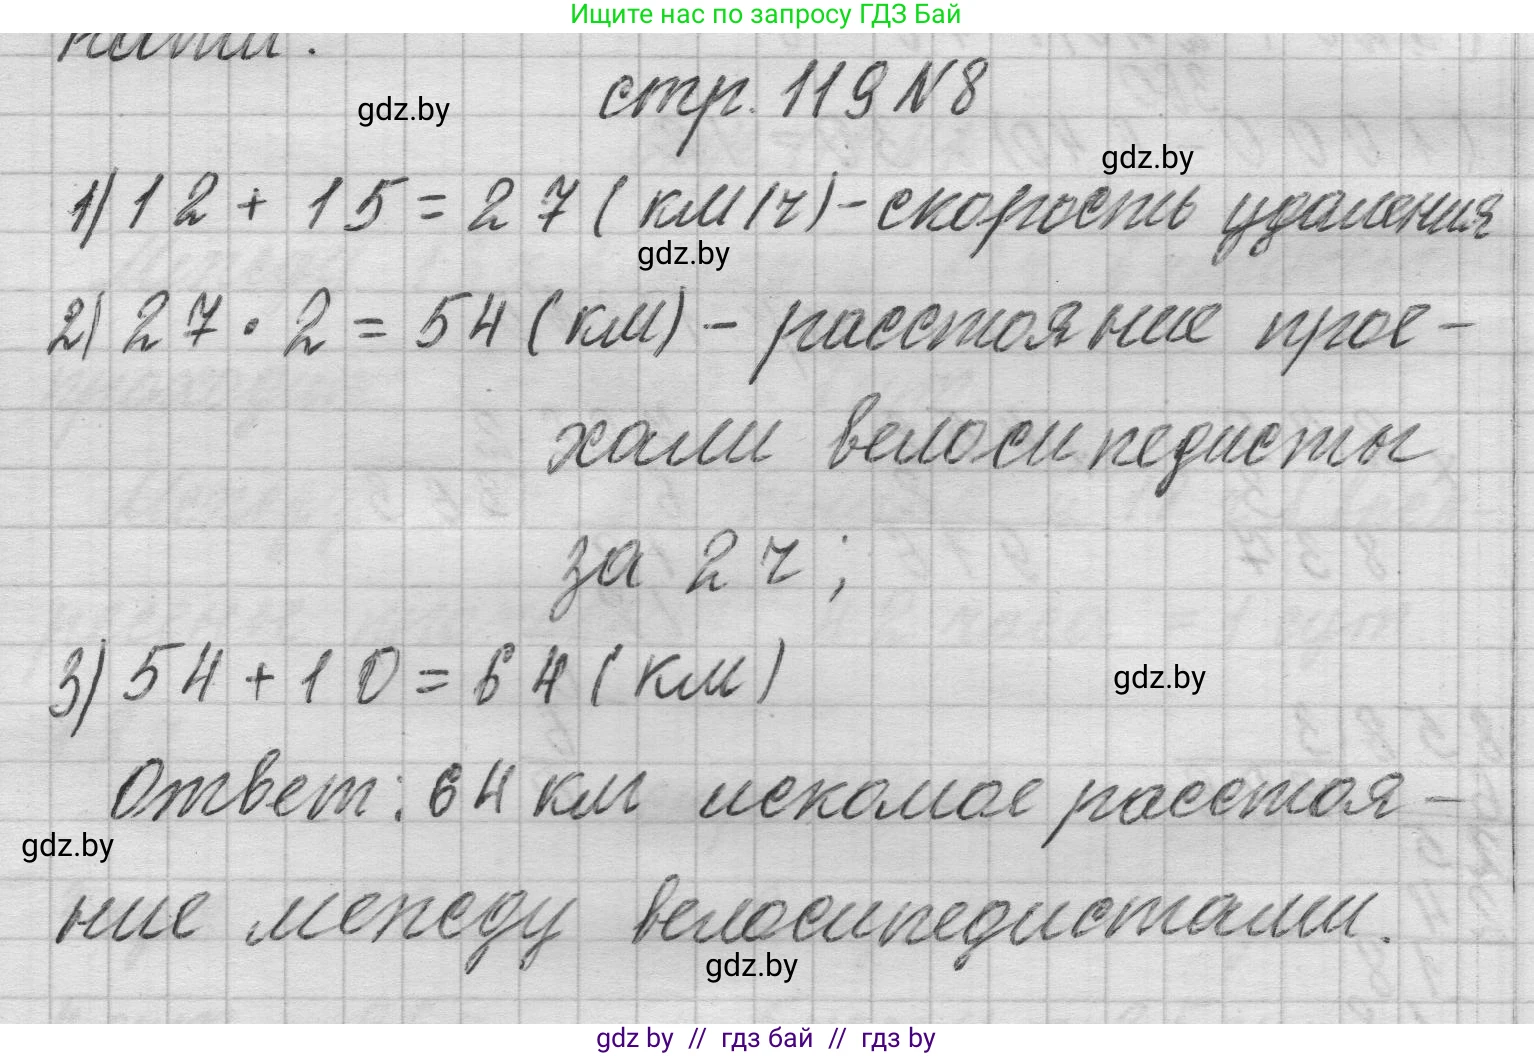 Ищите нас по запросу ГДЗ Бай
стр. 119 N 8
gdz.by
gdz.by
1) 12 + 15 = 27 (км/ч) - скорость удаления
gdz.by
2) 27 · 2 = 54 (км) - расстояние прое-
хали велосипедисты
за 2 ч;
3) 54 + 10 = 64 (км)
gdz.by
Ответ: 64 км искомое расстоя-
gdz.by
ние между велосипедистами.
gdz.by
gdz by // гдз бай // гдз by